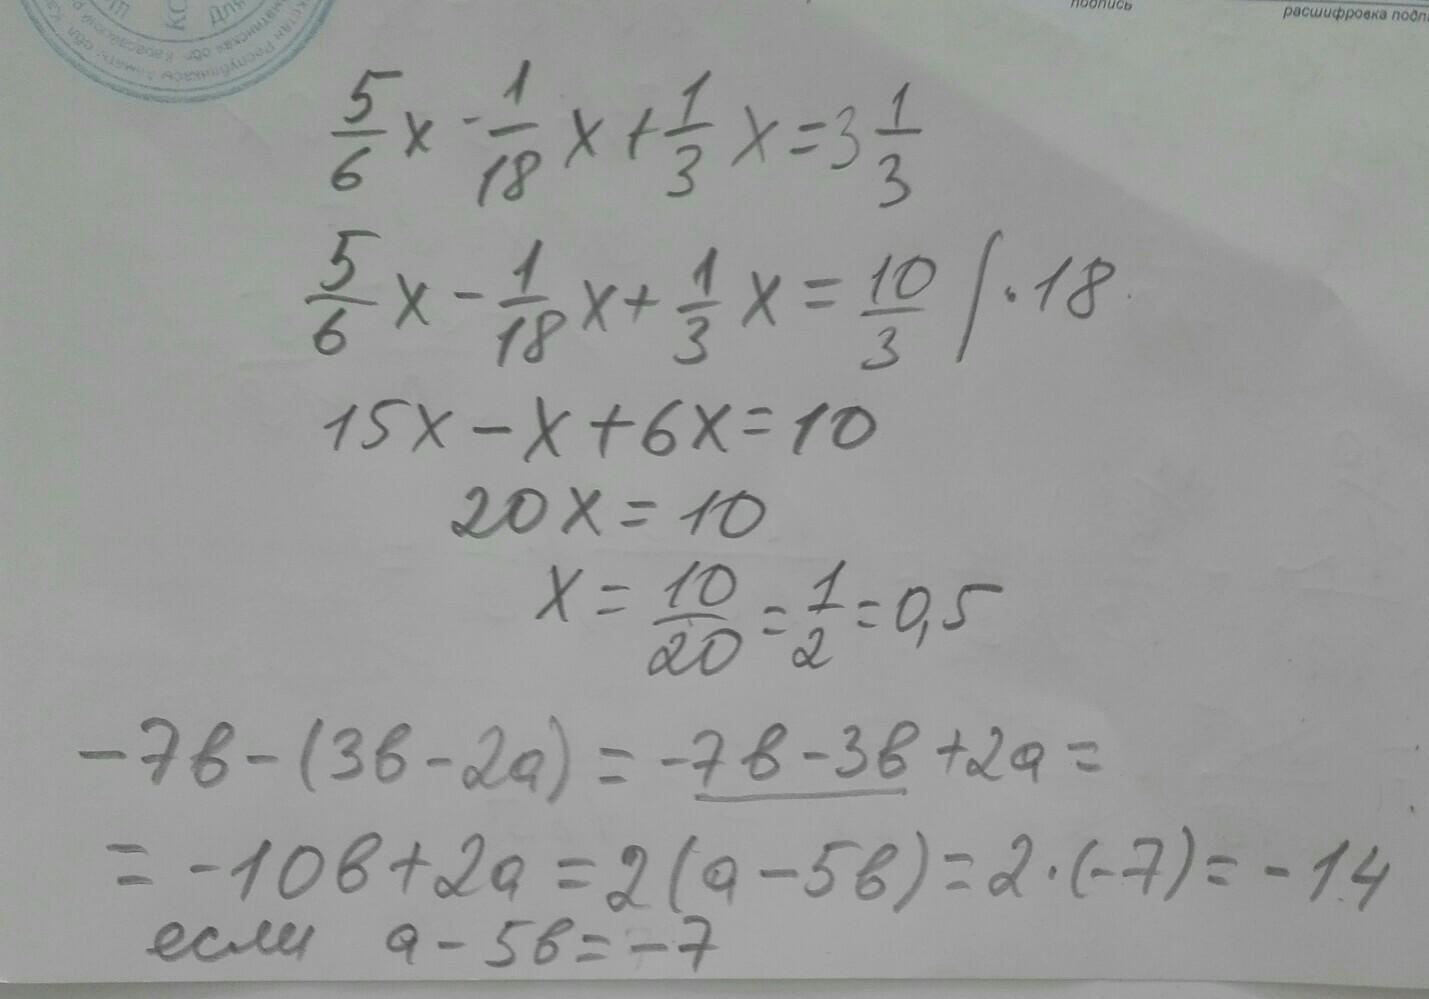 подпись
расшифровка подпи
5/6 x - 1/18 x + 1/3 x = 3 1/3
5/6 x - 1/18 x + 1/3 x = 10/3 | · 18
15x - x + 6x = 10
20x = 10
x = 10/20 = 1/2 = 0,5
-7в - (3в - 2а) = -7в - 3в + 2а =
= -10в + 2а = 2(а - 5в) = 2 · (-7) = -14
если а - 5в = -7